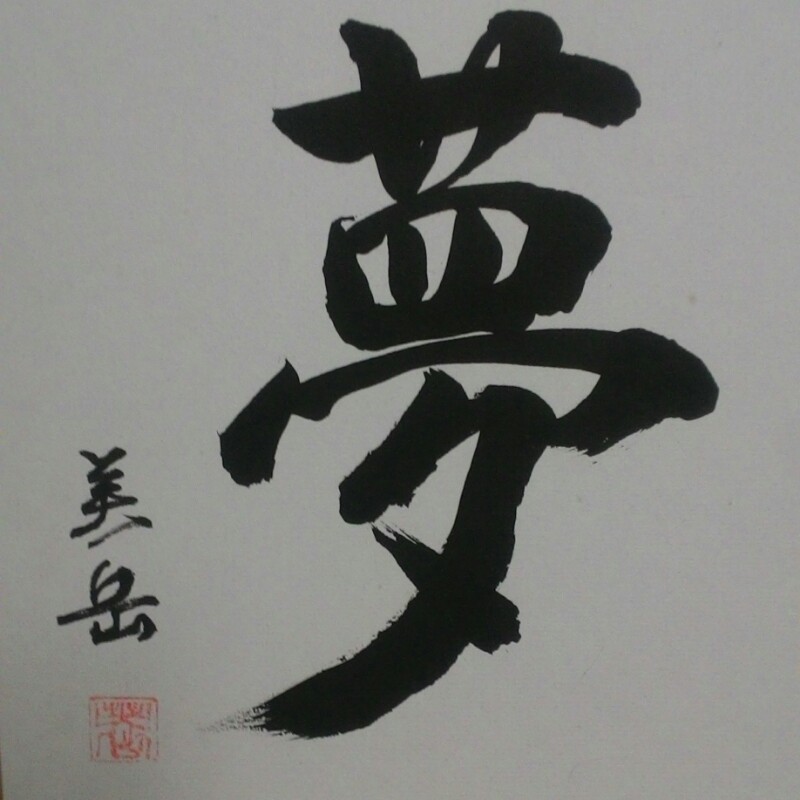 夢
美岳